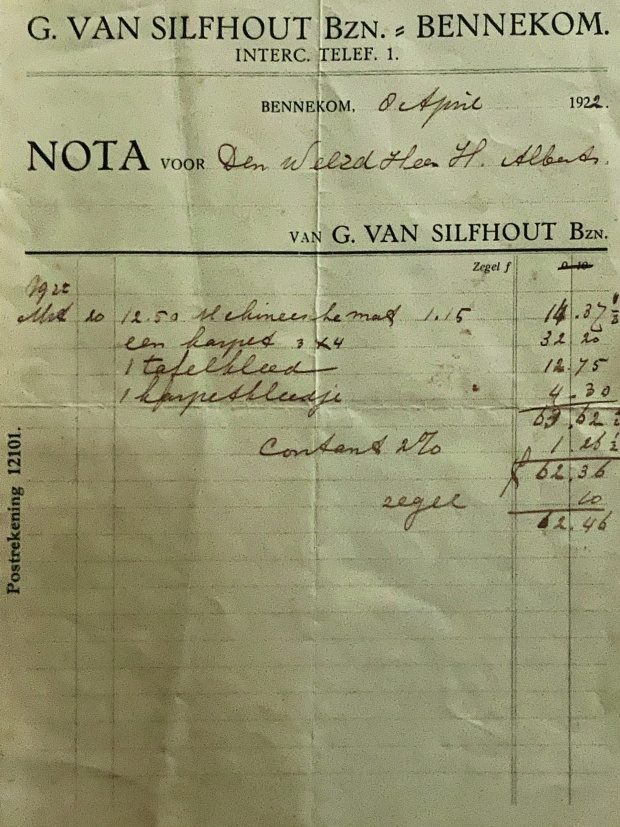 G. VAN SILFHOUT BZN. BENNEKOM.
INTERC. TELEF. 1.
BENNEKOM, 8 April 1922.
NOTA VOOR Den WelEd Heer H. Alberts.
VAN G. VAN SILFHOUT BZN.
Zegel ƒ 0 10
1922
Mrt 20 12.50 M chineesche mat 1.15 14.37½
een karpet 3 x 4 32 20
1 tafelkleed 12.75
1 karpetkleedje 4.30
63.62½
contant 2% 1 26½
ƒ 62.36
zegel 10
62.46
Postrekening 12101.